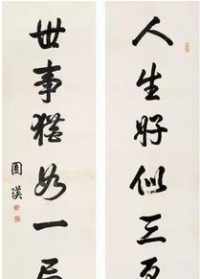 人生好似三
世事猶如一
圓瑛